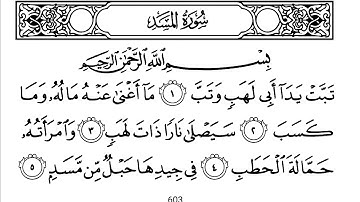 سُورَةُ المَسَدِ
بِسْمِ اللَّهِ الرَّحْمَٰنِ الرَّحِيمِ
تَبَّتْ يَدَآ أَبِى لَهَبٍ وَتَبَّ ١ مَآ أَغْنَىٰ عَنْهُ مَالُهُۥ وَمَا
كَسَبَ ٢ سَيَصْلَىٰ نَارًا ذَاتَ لَهَبٍ ٣ وَٱمْرَأَتُهُۥ
حَمَّالَةَ ٱلْحَطَبِ ٤ فِى جِيدِهَا حَبْلٌ مِّن مَّسَدٍۭ ٥
603